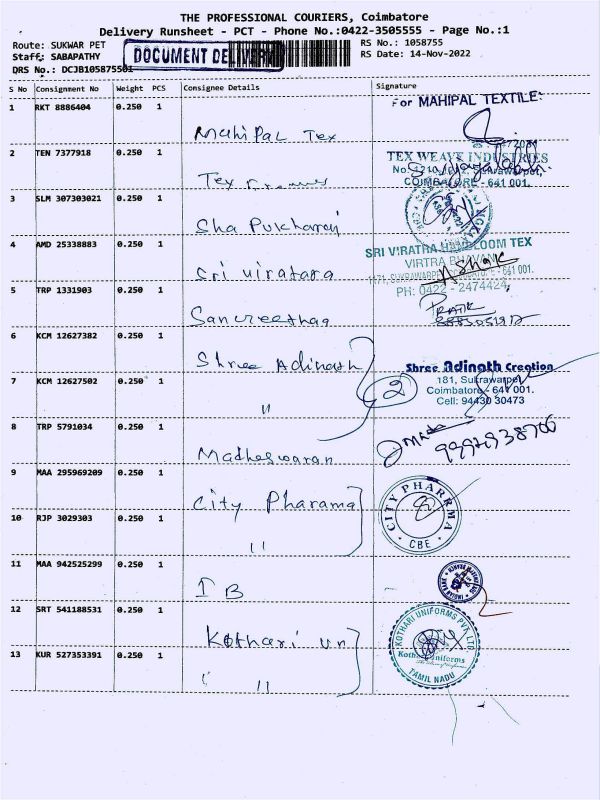 THE PROFESSIONAL COURIERS, Coimbatore
Delivery Runsheet - PCT - Phone No.:0422-3505555 - Page No.:1
Route: SUKWAR PET
RS No.: 1058755
Staff: SABAPATHY
DOCUMENT DELIVERY
RS Date: 14-Nov-2022
DRS No.: DCJB105875501
S No Consignment No Weight PCS Consignee Details Signature
1 RKT 8886404 0.250 1 Mahipal Tex
For MAHIPAL TEXTILE
2 TEN 7377918 0.250 1 Tex
TEX WEAVE INDUSTRIES
COIMBATORE - 641 001.
3 SLM 307303021 0.250 1 Sha Pukharaj
4 AMD 25338883 0.250 1 Sri viratara
SRI VIRATRA HANDLOOM TEX
VIRTRA BHAVAN
1171, SUKRAWARPET, COIMBATORE - 641 001.
PH: 0422 - 2474424
Ashok
5 TRP 1331903 0.250 1 Sangeethaa
PRATIK
6 KCM 12627382 0.250 1 Shree Adinath
Shree Adinath Creation
181, Sukrawarpet
Coimbatore - 641 001.
Cell: 94430 30473
7 KCM 12627502 0.250 1 "
2
8 TRP 5791034 0.250 1 Madheswaran
9 MAA 295969209 0.250 1 City Pharama
CITY PHARRMA
CBE
10 RJP 3029303 0.250 1 "
11 MAA 942525299 0.250 1 IB
12 SRT 541188531 0.250 1 Kothari un
KOTHARI UNIFORMS PVT LTD
Kothari Uniforms
TAMIL NADU
13 KUR 527353391 0.250 1 " "